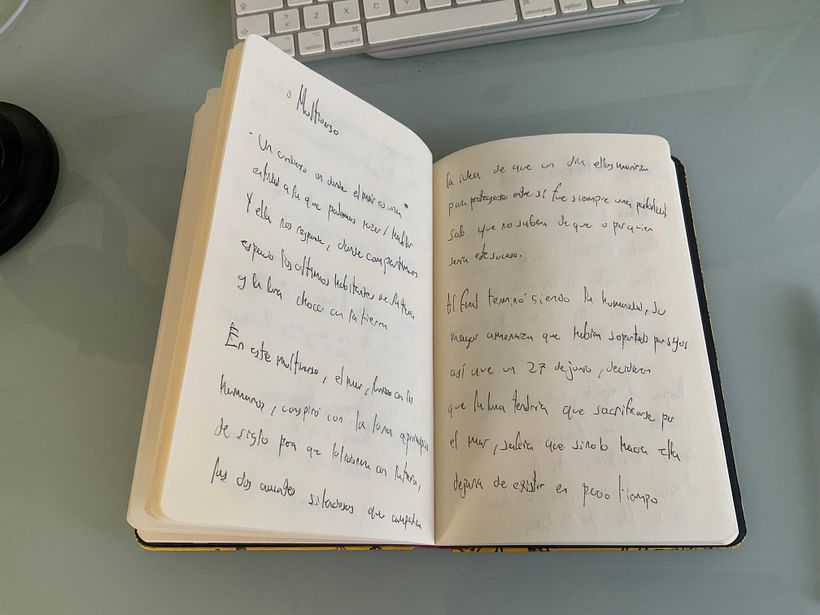 Multiverso
- Un universo en donde el mar es una
entidad a la que podemos rezar / hablar
Y ella nos responde, donde compartimos
espacio los ultimos habitantes de la tierra
y la luna choco con la tierra
En este multiverso, el mar, furioso con los
humanos, conspiró con la luna a principios
de siglo para que colisionara con la tierra,
las dos amantes silenciosas que compartían
la idea de que un día ellas morirían
para protegerse entre sí fue siempre una
solo que no sabían de que o por quien
sería este suceso.
Al final terminó siendo la humanidad, su
mayor amenaza que habían soportado por siglos
así que un 27 de junio, decidieron
que la luna tendría que sacrificarse por
el mar, sabía que si no lo hacía ella
dejaría de existir en poco tiempo
command
option
option
command
command
option
Z
X
C
V